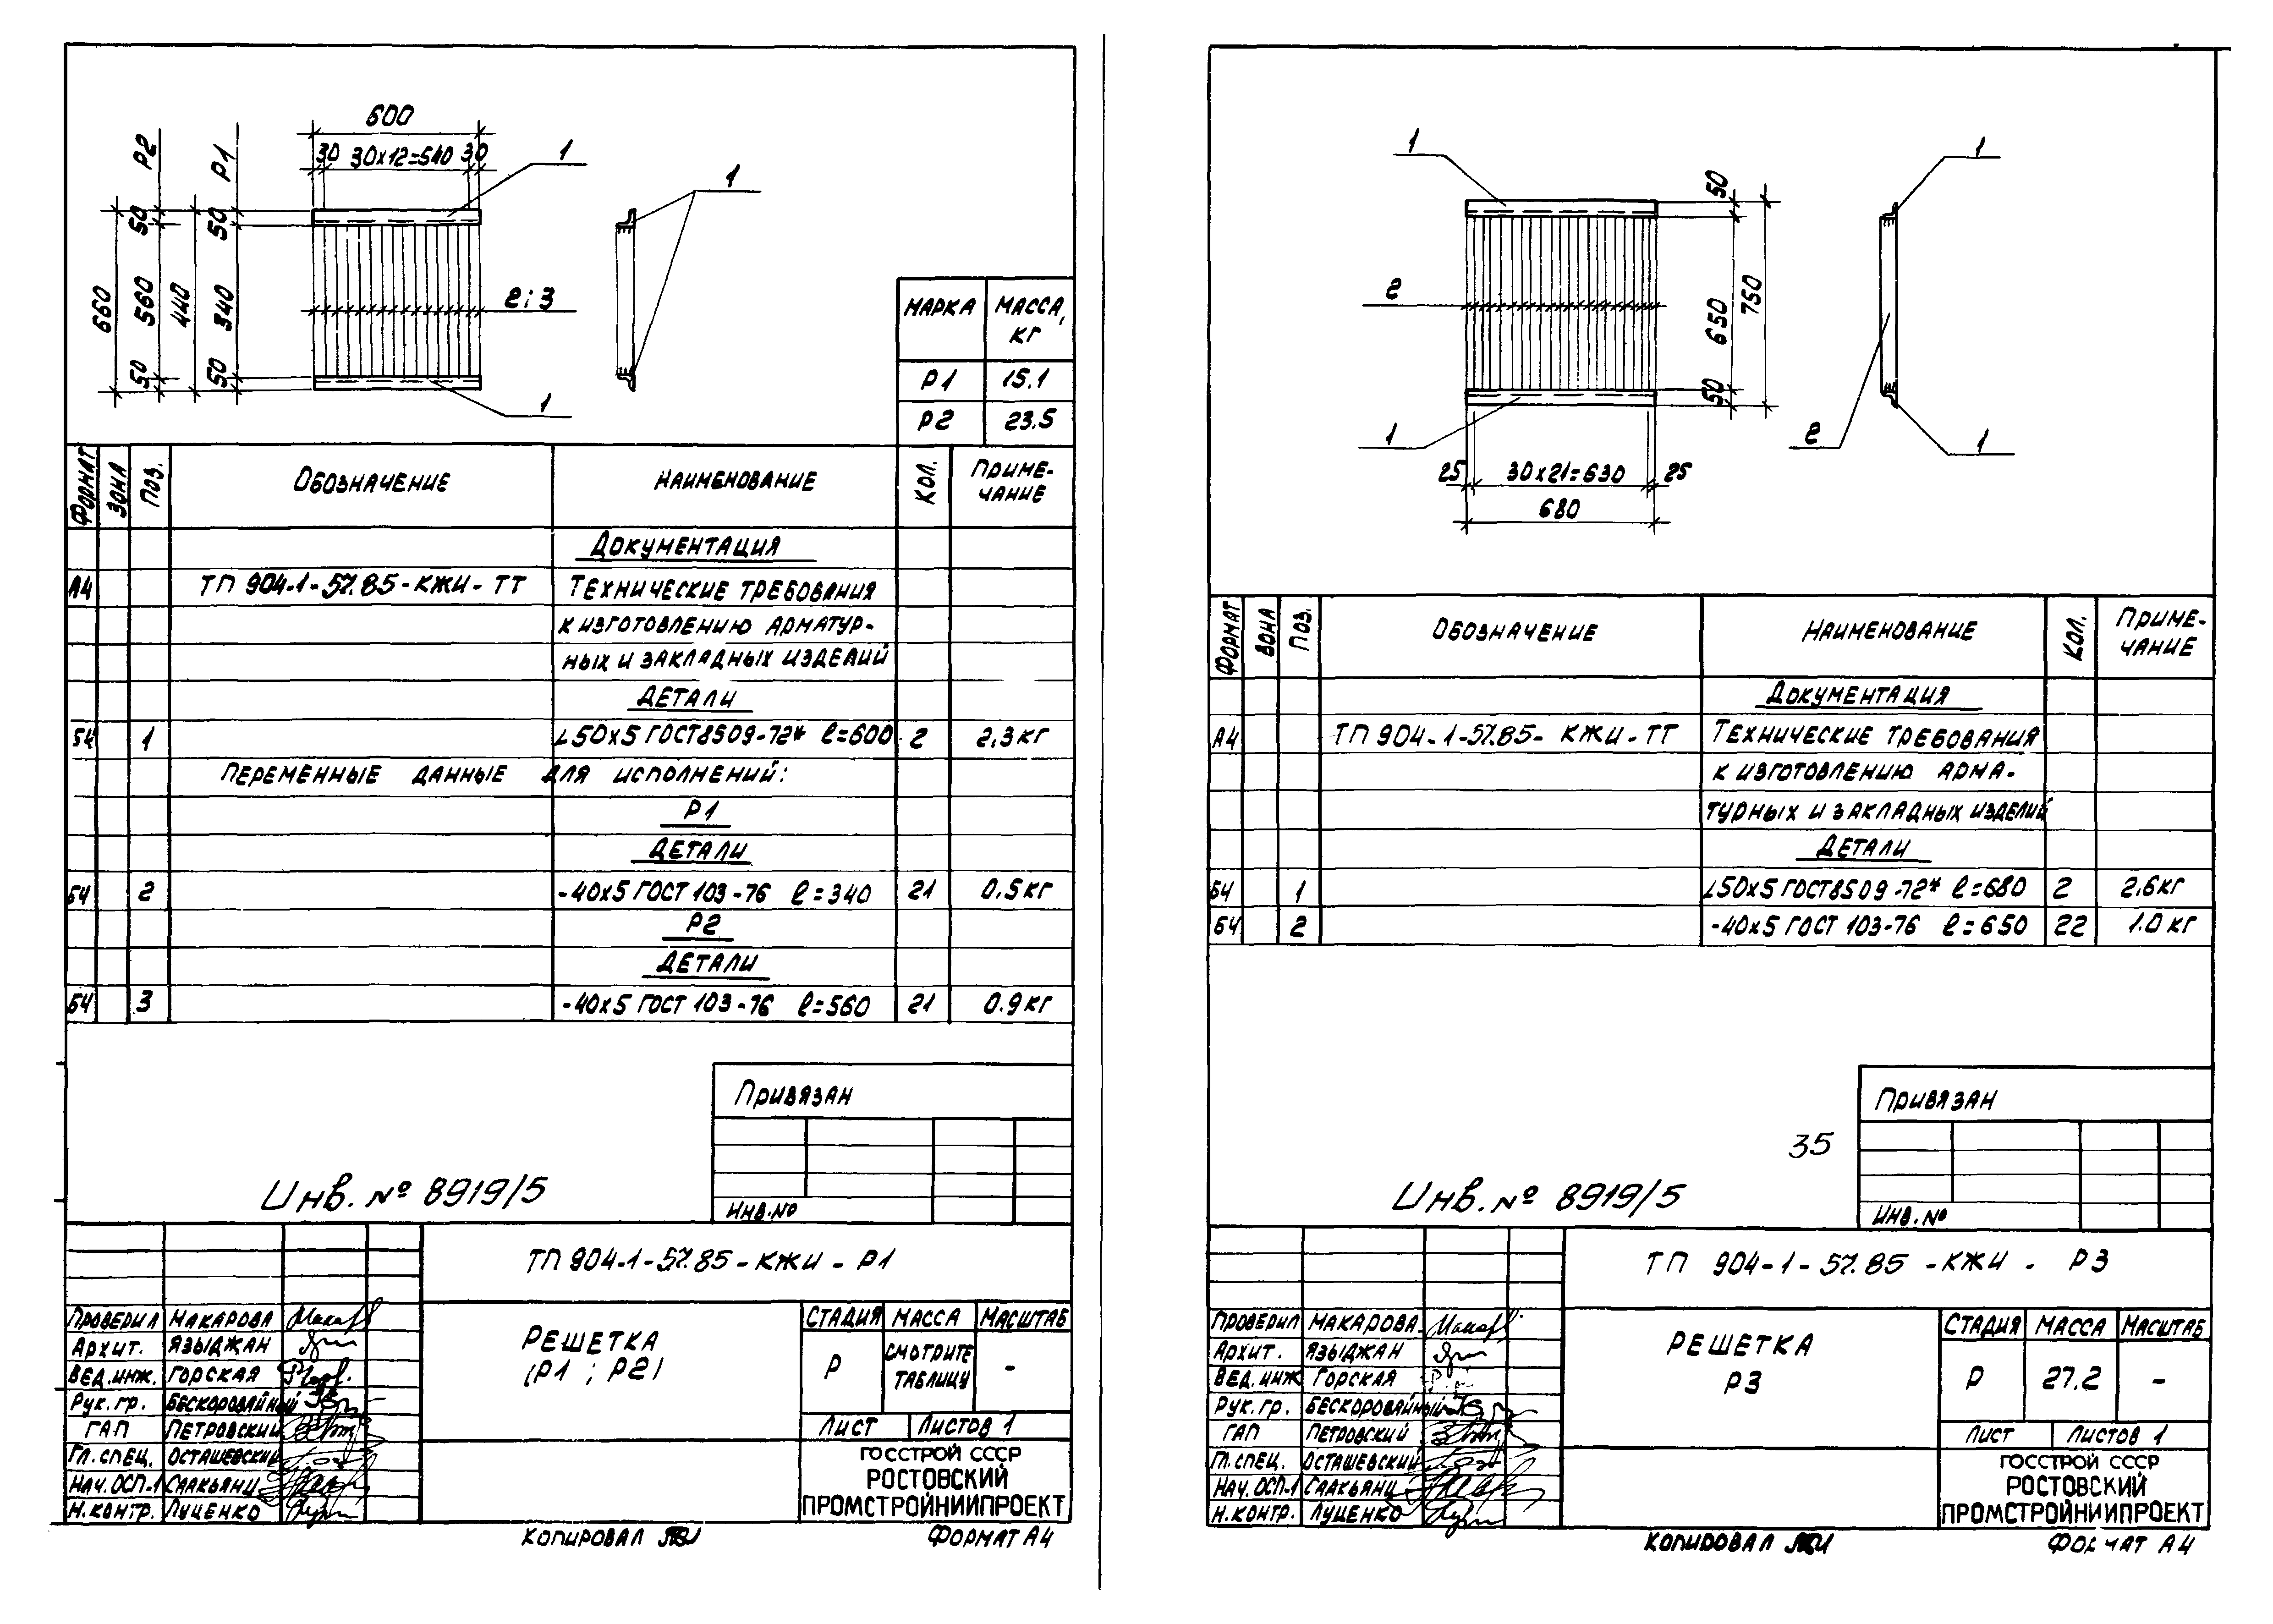 600
30 30х12=540 30
Р2
Р1
1
1
50
50
660
560
440
340
2; 3
50
50
1
МАРКА МАССА, КГ
Р1 15.1
Р2 23.5
ФОРМАТ ЗОНА ПОЗ. ОБОЗНАЧЕНИЕ НАИМЕНОВАНИЕ КОЛ. ПРИМЕ-
ЧАНИЕ
ДОКУМЕНТАЦИЯ
А4 ТП 904-1-57.85-КЖИ-ТТ ТЕХНИЧЕСКИЕ ТРЕБОВАНИЯ
К ИЗГОТОВЛЕНИЮ АРМАТУР-
НЫХ И ЗАКЛАДНЫХ ИЗДЕЛИЙ
ДЕТАЛИ
Б4 1 ∟50х5 ГОСТ8509-72* ℓ=600 2 2,3 кг
ПЕРЕМЕННЫЕ ДАННЫЕ ДЛЯ ИСПОЛНЕНИЙ:
Р1
ДЕТАЛИ
Б4 2 -40х5 ГОСТ 103-76 ℓ=340 21 0.5 кг
Р2
ДЕТАЛИ
Б4 3 -40х5 ГОСТ 103-76 ℓ=560 21 0.9 кг
Привязан
Инв. № 8919/5
ИНВ.№
ТП 904-1-57.85-КЖИ-Р1
ПРОВЕРИЛ МАКАРОВА
АРХИТ. ЯЗЫДЖАН
ВЕД.ИНЖ. ГОРСКАЯ
РУК.ГР. БЕСКОРОВАЙНЫЙ
ГАП ПЕТРОВСКИЙ
ГЛ.СПЕЦ. ОСТАШЕВСКИЙ
НАЧ.ОСП-1 СААКЬЯНЦ
Н.КОНТР. ЛУЦЕНКО
РЕШЕТКА
(Р1 ; Р2)
СТАДИЯ МАССА МАСШТАБ
Р СМОТРИТЕ ТАБЛИЦУ -
ЛИСТ ЛИСТОВ 1
ГОССТРОЙ СССР
РОСТОВСКИЙ
ПРОМСТРОЙНИИПРОЕКТ
КОПИРОВАЛ ФОРМАТ А4
1
1
50
2
650
750
50
1
2
1
25 30х21=630 25
680
ФОРМАТ ЗОНА ПОЗ. ОБОЗНАЧЕНИЕ НАИМЕНОВАНИЕ КОЛ. ПРИМЕ-
ЧАНИЕ
ДОКУМЕНТАЦИЯ
А4 ТП 904-1-57.85-КЖИ-ТТ ТЕХНИЧЕСКИЕ ТРЕБОВАНИЯ
К ИЗГОТОВЛЕНИЮ АРМА-
ТУРНЫХ И ЗАКЛАДНЫХ ИЗДЕЛИЙ
ДЕТАЛИ
Б4 1 ∟50х5 ГОСТ8509-72* ℓ=680 2 2,6 кг
Б4 2 -40х5 ГОСТ 103-76 ℓ=650 22 1.0 кг
Привязан
35
Инв. № 8919/5
ИНВ.№
ТП 904-1-57.85-КЖИ-Р3
ПРОВЕРИЛ МАКАРОВА
АРХИТ. ЯЗЫДЖАН
ВЕД.ИНЖ ГОРСКАЯ
РУК.ГР. БЕСКОРОВАЙНЫЙ
ГАП ПЕТРОВСКИЙ
ГЛ.СПЕЦ. ОСТАШЕВСКИЙ
НАЧ.ОСП-1 СААКЬЯНЦ
Н.КОНТР. ЛУЦЕНКО
РЕШЕТКА
Р3
СТАДИЯ МАССА МАСШТАБ
Р 27.2 -
ЛИСТ ЛИСТОВ 1
ГОССТРОЙ СССР
РОСТОВСКИЙ
ПРОМСТРОЙНИИПРОЕКТ
КОПИРОВАЛ ФОРМАТ А4